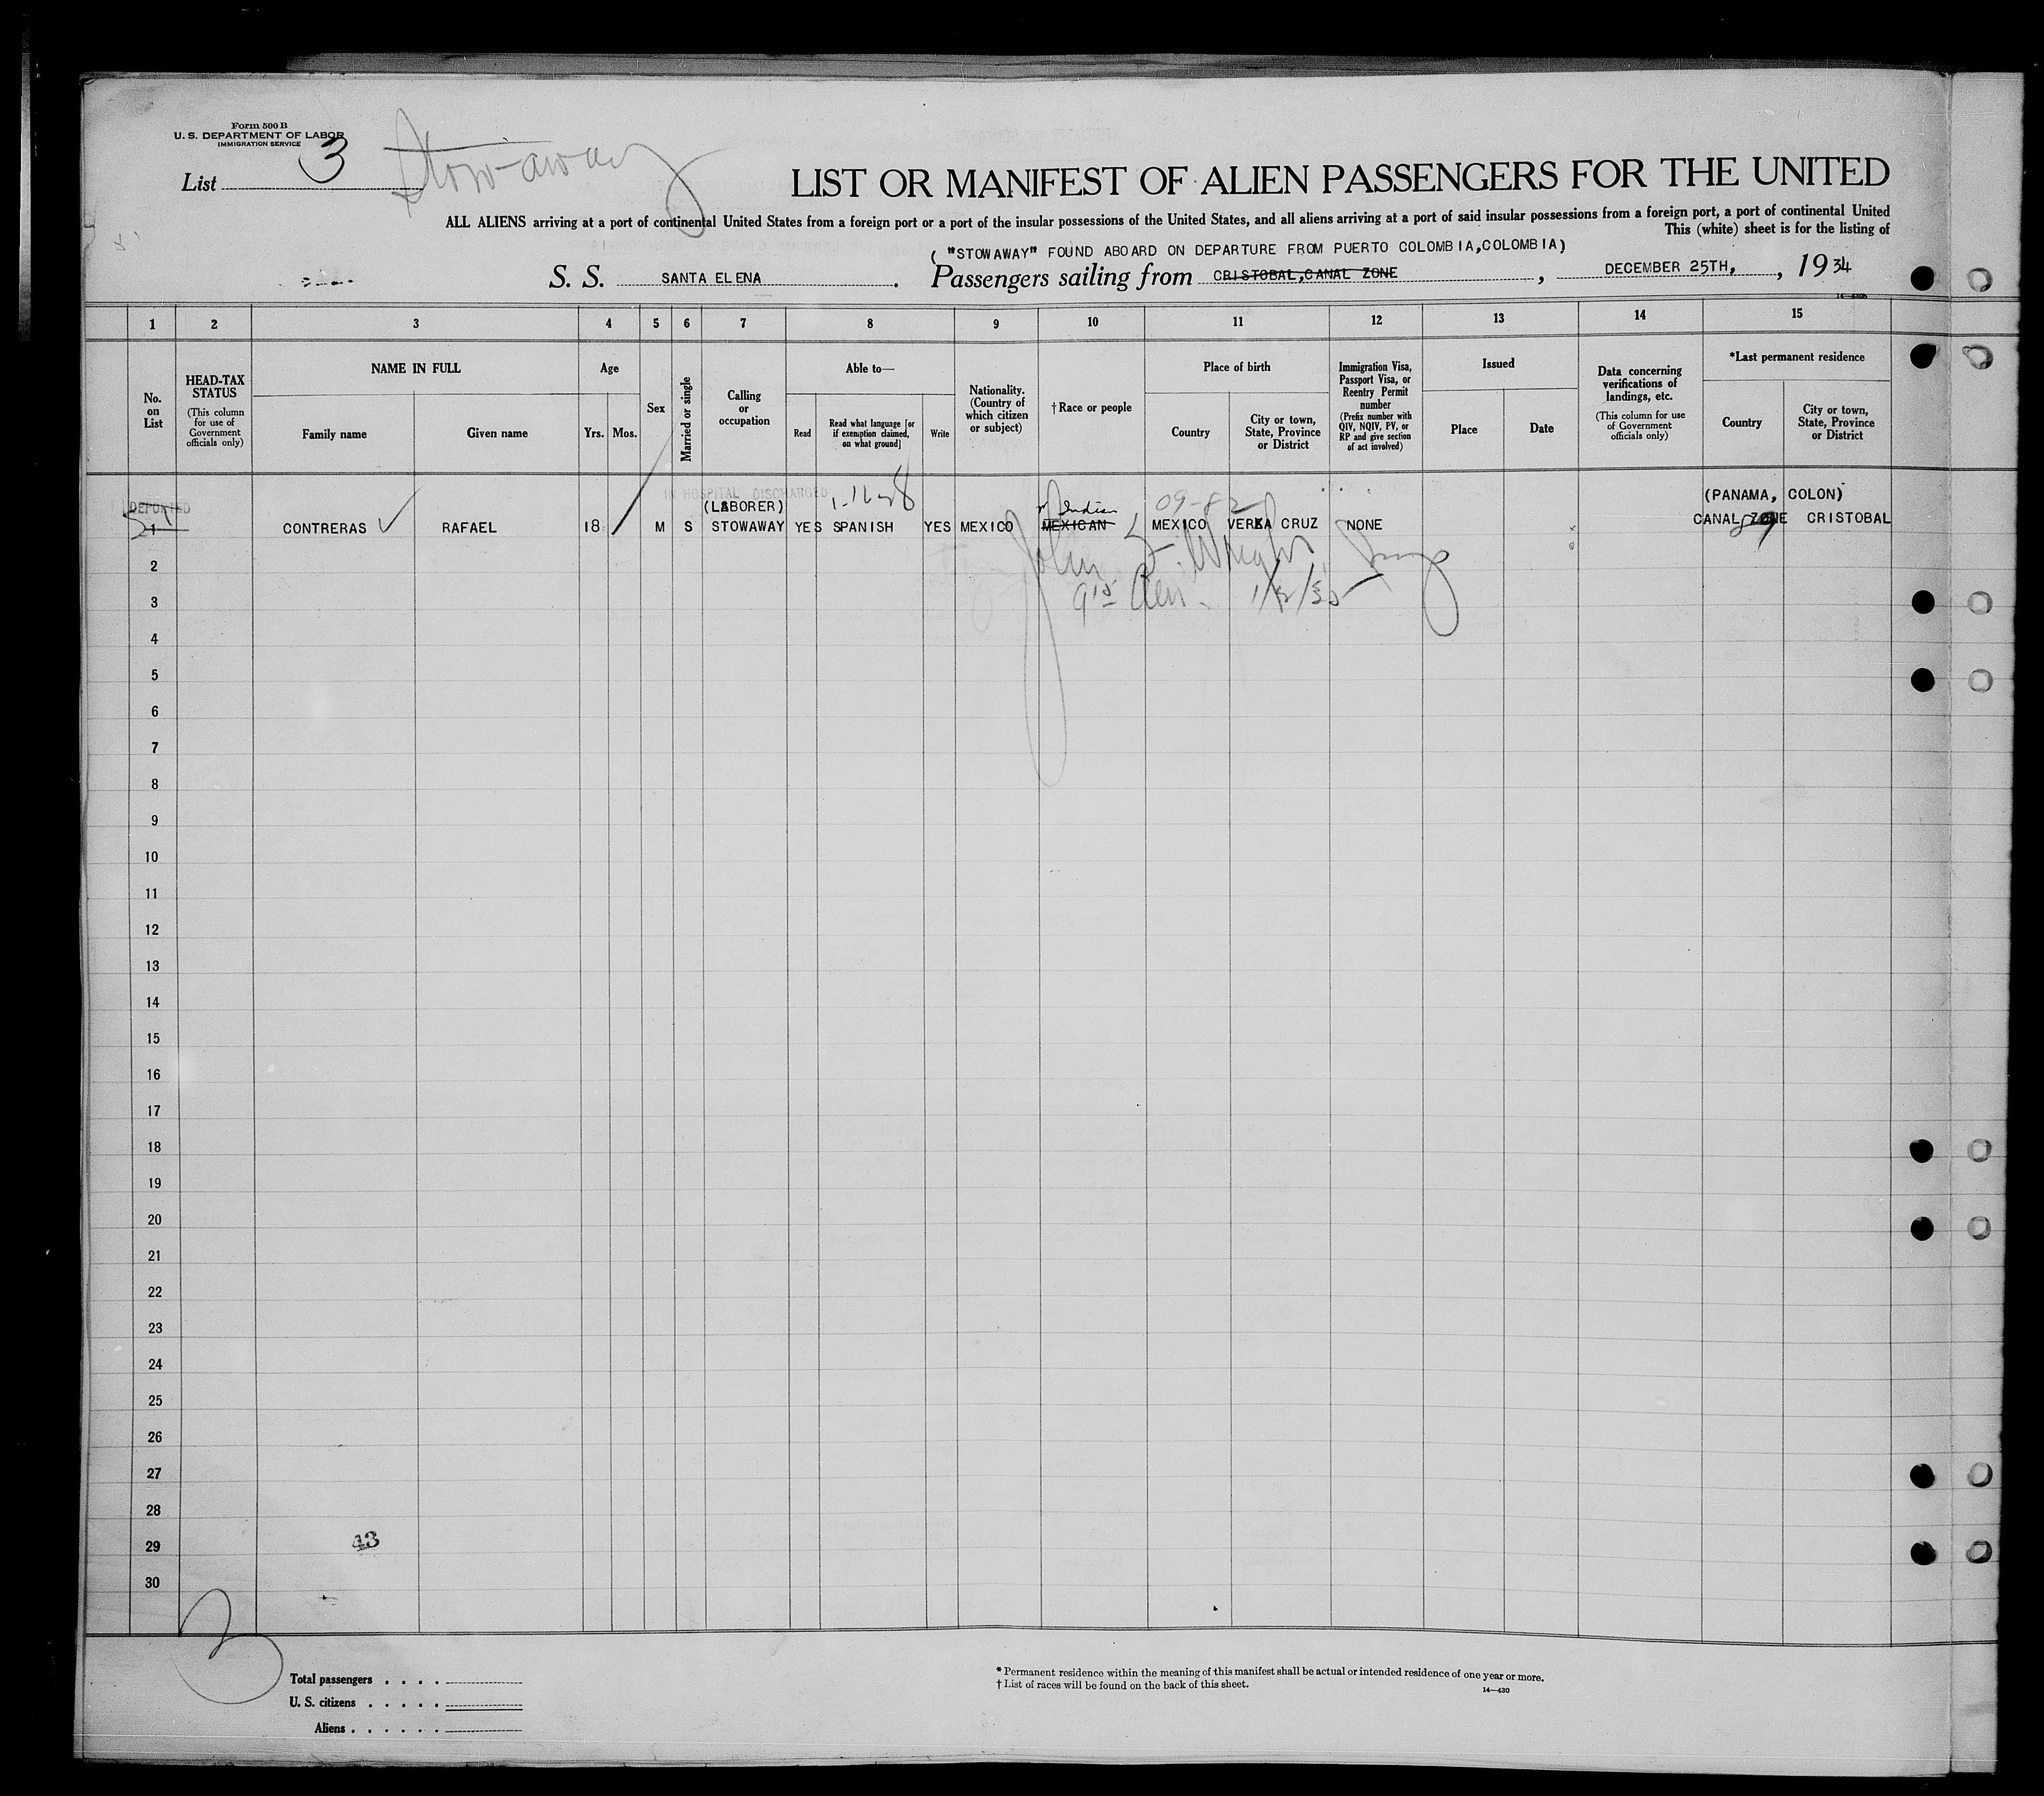 Form 500 B
U. S. DEPARTMENT OF LABOR
IMMIGRATION SERVICE
List 3
Stow-away
LIST OR MANIFEST OF ALIEN PASSENGERS FOR THE UNITED
ALL ALIENS arriving at a port of continental United States from a foreign port or a port of the insular possessions of the United States, and all aliens arriving at a port of said insular possessions from a foreign port, a port of continental United
This (white) sheet is for the listing of
( "STOWAWAY" FOUND ABOARD ON DEPARTURE FROM PUERTO COLOMBIA,COLOMBIA)
S. S. SANTA ELENA. Passengers sailing from CRISTOBAL,CANAL ZONE, DECEMBER 25TH,, 1934
1 2 3 4 5 6 7 8 9 10 11 12 13 14 15
No. on List
HEAD-TAX STATUS
(This column for use of Government officials only)
NAME IN FULL
Family name
Given name
Age
Yrs. Mos.
Sex
Married or single
Calling or occupation
Able to—
Read
Read what language [or if exemption claimed, on what ground]
Write
Nationality. (Country of which citizen or subject)
† Race or people
Place of birth
Country
City or town, State, Province or District
Immigration Visa, Passport Visa, or Reentry Permit number
(Prefix number with QIV, NQIV, PV, or RP and give section of act involved)
Issued
Place
Date
Data concerning verifications of landings, etc.
(This column for use of Government officials only)
*Last permanent residence
Country
City or town, State, Province or District
DEPORTED
IN HOSPITAL DISCHARGED
(LABORER)
Indian
(PANAMA, COLON)
1 CONTRERAS RAFAEL 18 M S STOWAWAY YES SPANISH YES MEXICO MEXICAN MEXICO VERA CRUZ NONE CANAL ZONE CRISTOBAL
John Wright
2
3
4
5
6
7
8
9
10
11
12
13
14
15
16
17
18
19
20
21
22
23
24
25
26
27
28
29
30
43
Total passengers . . . .
U. S. citizens . . . . .
Aliens . . . . . .
* Permanent residence within the meaning of this manifest shall be actual or intended residence of one year or more.
† List of races will be found on the back of this sheet.
14—430